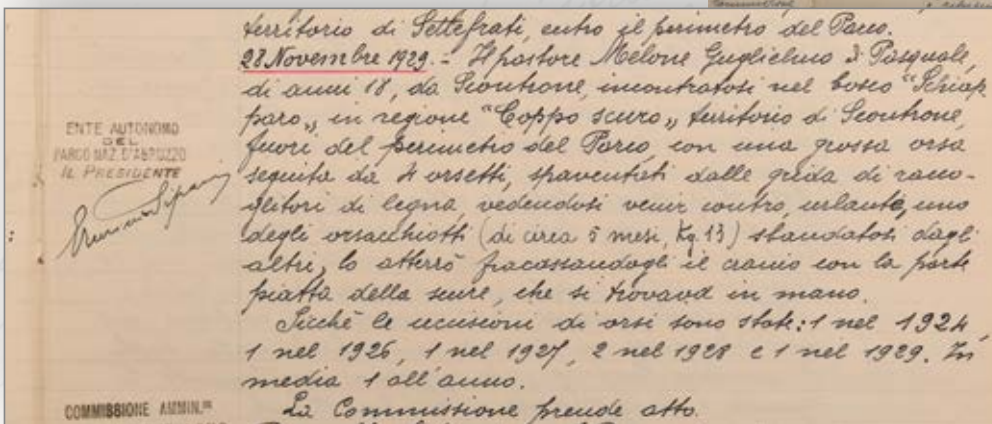 territorio di Settefrati, entro il perimetro del Parco.
28 Novembre 1929. - Il pastore Melone Guglielmo di Pasquale,
di anni 18, da Scontrone, incontratosi nel bosco "Schiap
paro„ in regione "Coppo scuro„ territorio di Scontrone,
fuori del perimetro del Parco, con una grossa orsa
seguita da 4 orsetti, spaventati dalle grida di racco-
glitori di legna, vedendosi venir contro, urlante, uno
degli orsacchiotti (di circa 5 mesi, Kg. 13) sbandatosi dagli
altri, lo atterrò fracassandogli il cranio con la parte
piatta della scure, che si trovava in mano.
Sicché le uccisioni di orsi sono state: 1 nel 1924,
1 nel 1926, 1 nel 1927, 2 nel 1928 e 1 nel 1929. In
media 1 all'anno.
La Commissione prende atto.
ENTE AUTONOMO
DEL
PARCO NAZ. D'ABRUZZO
IL PRESIDENTE
COMMISSIONE AMMIN.